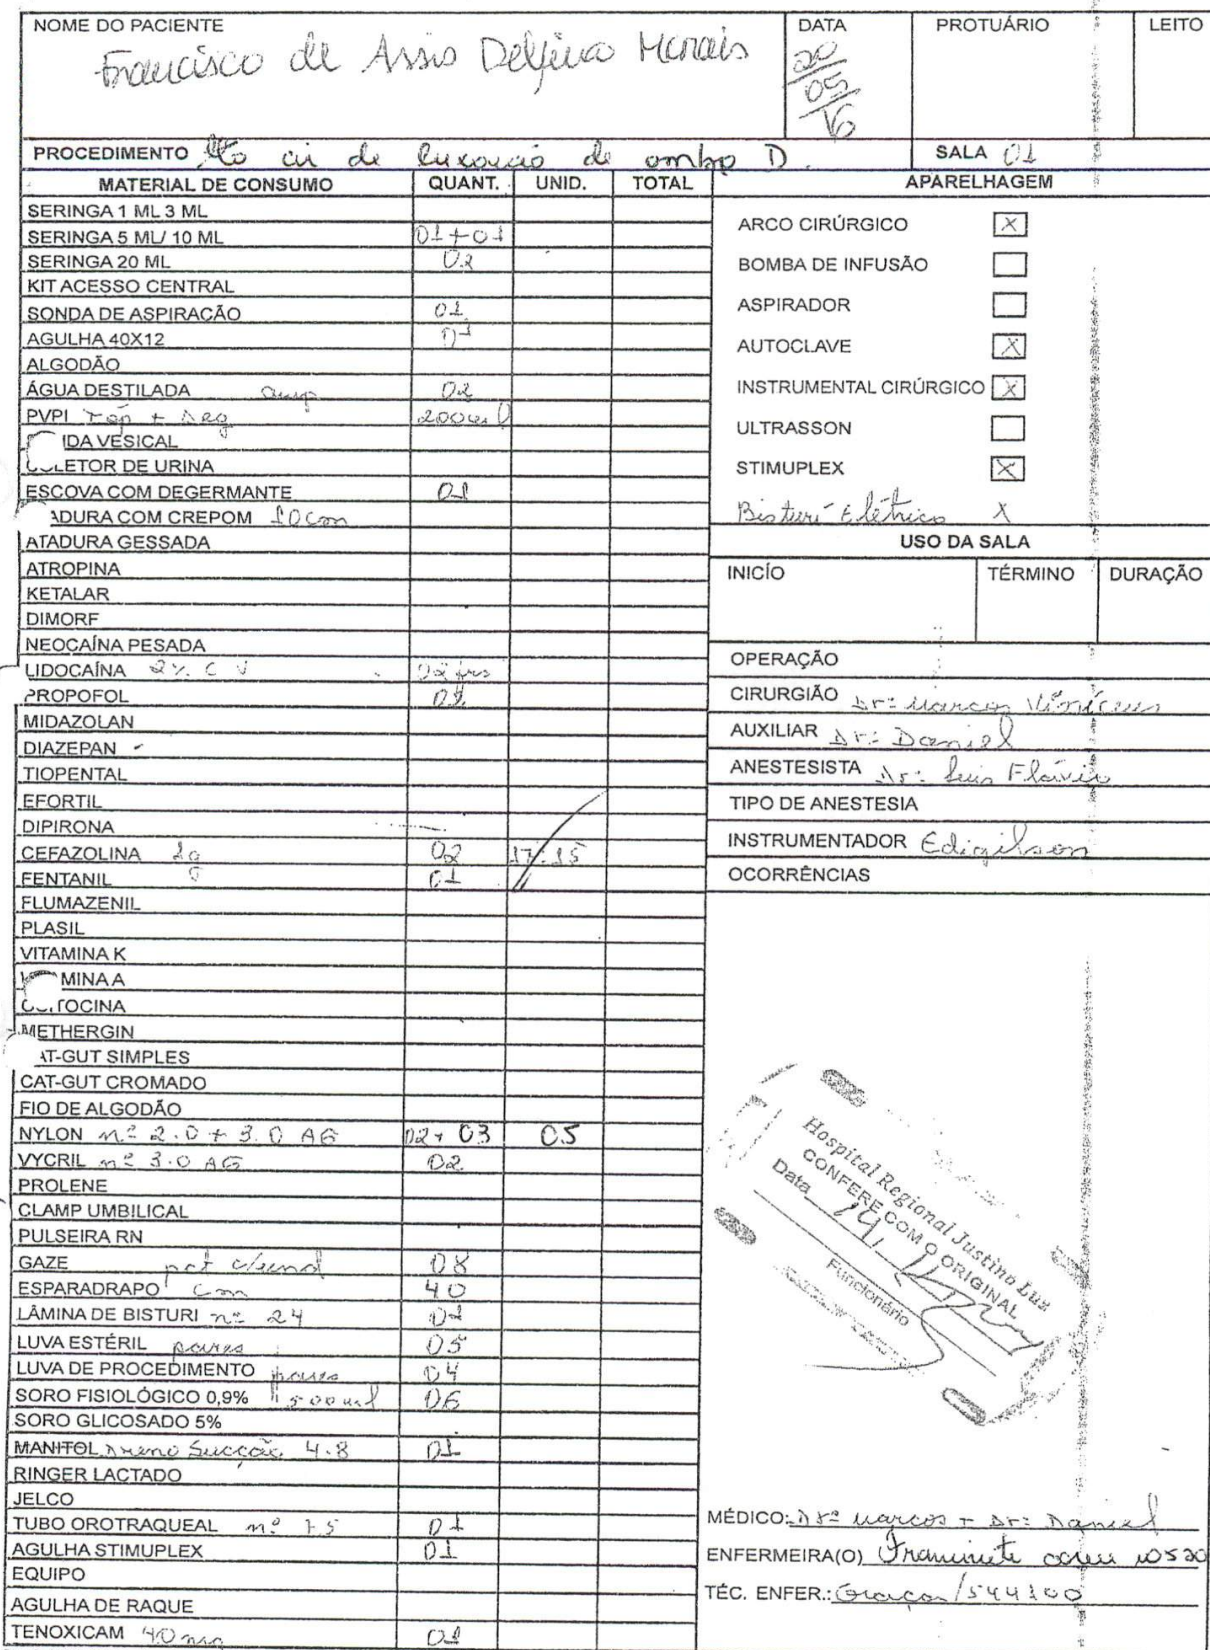 NOME DO PACIENTE DATA PROTUÁRIO LEITO
Francisco de Assis Delfino Morais 20/05/16
PROCEDIMENTO tto cir de luxação de ombro D. SALA 01
MATERIAL DE CONSUMO QUANT. UNID. TOTAL APARELHAGEM
SERINGA 1 ML 3 ML
SERINGA 5 ML/ 10 ML 01+01
SERINGA 20 ML 02
KIT ACESSO CENTRAL
SONDA DE ASPIRAÇÃO 01
AGULHA 40X12 01
ALGODÃO
ÁGUA DESTILADA amp 02
PVPI Top + Deg 200ml
IDA VESICAL
LETOR DE URINA
ESCOVA COM DEGERMANTE 01
ADURA COM CREPOM 10cm
ATADURA GESSADA
ATROPINA
KETALAR
DIMORF
NEOCAÍNA PESADA
LIDOCAÍNA 2% C V 02 frs
PROPOFOL 01
MIDAZOLAN
DIAZEPAN
TIOPENTAL
EFORTIL
DIPIRONA
CEFAZOLINA 1g 02 17:15
FENTANIL 01
FLUMAZENIL
PLASIL
VITAMINA K
MINA A
TOCINA
METHERGIN
AT-GUT SIMPLES
CAT-GUT CROMADO
FIO DE ALGODÃO
NYLON nº 2.0 + 3.0 AG 02+03 05
VYCRIL nº 3.0 AG 02
PROLENE
CLAMP UMBILICAL
PULSEIRA RN
GAZE pct c/und 08
ESPARADRAPO cm 40
LÂMINA DE BISTURI nº 24 01
LUVA ESTÉRIL pares 05
LUVA DE PROCEDIMENTO pares 04
SORO FISIOLÓGICO 0,9% 500ml 06
SORO GLICOSADO 5%
MANITOL Dreno Sucção 4.8 01
RINGER LACTADO
JELCO
TUBO OROTRAQUEAL nº 7.5 01
AGULHA STIMUPLEX 01
EQUIPO
AGULHA DE RAQUE
TENOXICAM 40 mg 01
ARCO CIRÚRGICO X
BOMBA DE INFUSÃO
ASPIRADOR
AUTOCLAVE X
INSTRUMENTAL CIRÚRGICO X
ULTRASSON
STIMUPLEX X
Bisturi Elétrico X
USO DA SALA
INICÍO TÉRMINO DURAÇÃO
OPERAÇÃO
CIRURGIÃO Drº Marcos Vinícius
AUXILIAR Drº Daniel
ANESTESISTA Drº Luis Flávio
TIPO DE ANESTESIA
INSTRUMENTADOR Edigilson
OCORRÊNCIAS
Hospital Regional Justino Luz
CONFERE COM O ORIGINAL
Data
Funcionário
MÉDICO: Drº Marcos + Drº Daniel
ENFERMEIRA(O)
TÉC. ENFER.: Graças/544100